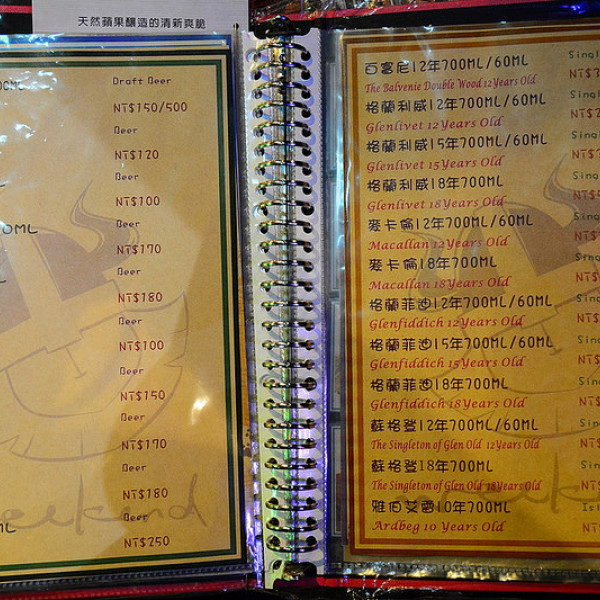 天然蘋果釀造的清新爽脆
Draft Beer
NT$150/500
Beer
NT$120
Beer
NT$100
Beer
NT$170
Beer
NT$180
Beer
NT$100
Beer
NT$150
Beer
NT$170
Beer
NT$180
Beer
NT$250
百富尼12年700ML/60ML
The Balvenie Double Wood 12Years Old
格蘭利威12年700ML/60ML
Glenlivet 12Years Old
格蘭利威15年700ML/60ML
Glenlivet 15Years Old
格蘭利威18年700ML
Glenlivet 18Years Old
麥卡倫12年700ML/60ML
Macallan 12Years Old
麥卡倫18年700ML
Macallan 18Years Old
格蘭菲迪12年700ML/60ML
Glenfiddich 12Years Old
格蘭菲迪15年700ML/60ML
Glenfiddich 15Years Old
格蘭菲迪18年700ML
Glenfiddich 18Years Old
蘇格登12年700ML/60ML
The Singleton of Glen Old 12Years Old
蘇格登18年700ML
The Singleton of Glen Old 18Years Old
雅伯艾爾10年700ML
Ardbeg 10 Years Old